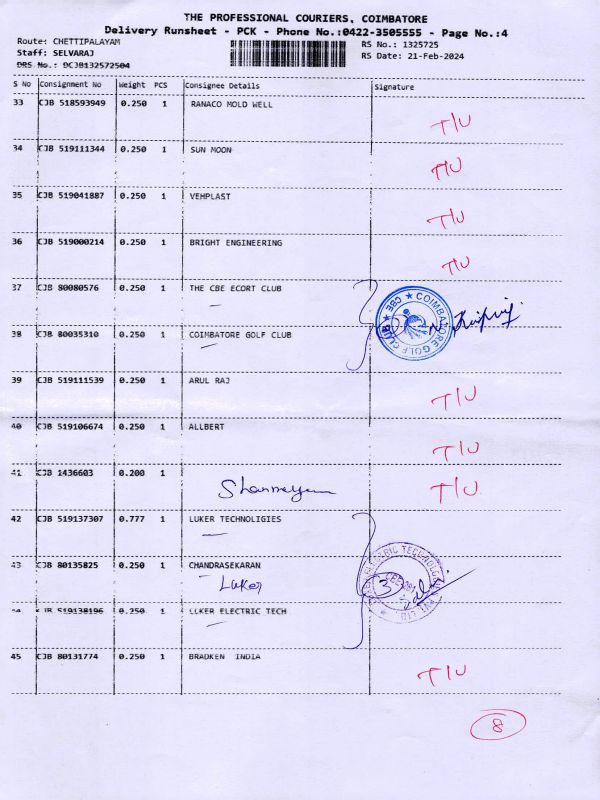 THE PROFESSIONAL COURIERS, COIMBATORE
Delivery Runsheet - PCK - Phone No.:0422-3505555 - Page No.:4
Route: CHETTIPALAYAM RS No.: 1325725
Staff: SELVARAJ RS Date: 21-Feb-2024
DRS No.: DCJB132572504
S No Consignment No Weight PCS Consignee Details Signature
33 CJB 518593949 0.250 1 RANACO MOLD WELL T/U
34 CJB 519111344 0.250 1 SUN MOON T/U
35 CJB 519041887 0.250 1 VEHPLAST T/U
36 CJB 519000214 0.250 1 BRIGHT ENGINEERING T/U
37 CJB 80080576 0.250 1 THE CBE ECORT CLUB
COIMBATORE GOLF CLUB ★ CBE ★
38 CJB 80035310 0.250 1 COIMBATORE GOLF CLUB
39 CJB 519111539 0.250 1 ARUL RAJ T/U
40 CJB 519106674 0.250 1 ALLBERT T/U
41 CJB 1436603 0.200 1 T/U
42 CJB 519137307 0.777 1 LUKER TECHNOLIGIES
43 CJB 80135825 0.250 1 CHANDRASEKARAN
Luker
3
44 CJB 519138196 0.250 1 LUKER ELECTRIC TECH
45 CJB 80131774 0.250 1 BRADKEN INDIA T/U
8